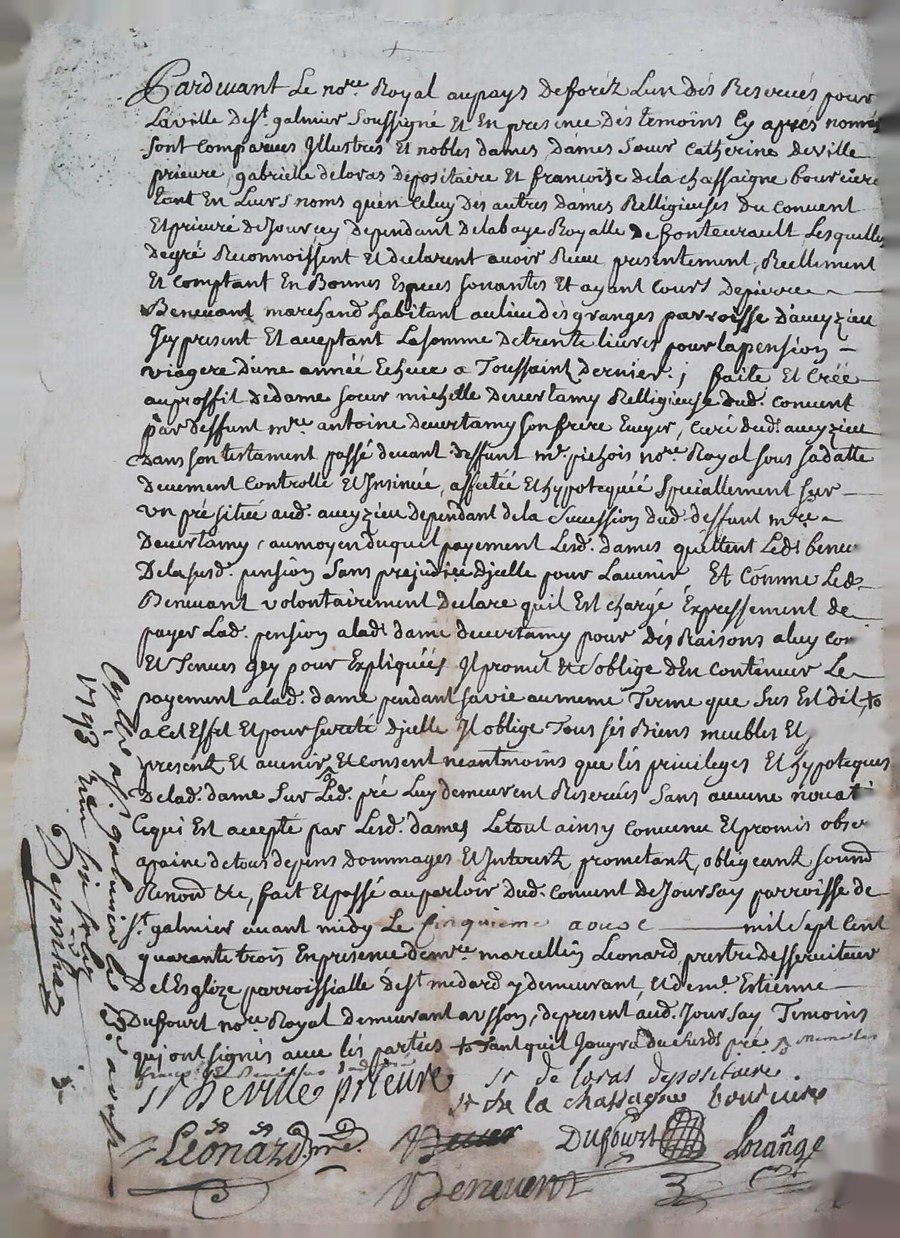 Pardevant Le nore Royal au pays de forez L'un des Reservés pour
La ville de st. galmier soussigné et En presence des temoins Cy après nommés
sont comparues Illustres Et nobles dames, dames sœur Catherine deville
prieure, gabrielle deloras depositaire Et francoise de la chassaigne bourciere
tant En Leurs noms qu'en Celuy des autres dames Relligieuses du couvent
Et prieuré de Joursey dependant de labaye Royalle de fonteurault, Lesquelles
degré Reconnoissent Et declarent avoir Receu presentement, Reellement
Et comptant En Bonnes Especes sonantes Et ayant cours de pierre
Benevant marchand habitant au lieu des granges parroisse d'aveyzieu
Icy present Et acceptant La somme de trente livres pour la pension
viagere d'une année Echeue a Toussaint dernier; faite Et Créé
au proffit de dame sœur michelle devertamy Relligieuse dud. couvent
par deffunt mre antoine devertamy son frere Curé dud. aveyzieu
Dans son testament passé devant deffunt me piehois nore Royal sous sa datte
Deuement Controllé Et Insinué, affectée Et hypotequée speciallement sur
un pré situé aud. aveyzieu dependant de la succession dud. deffunt mre
Devertamy, au moyen duquel payement Lesd. dames quittent Led. benev
De la susd. pension sans prejudice d'jcelle pour L'avenir Et Comme Led.
Benevant volontairement declare quil Est chargé Expressement de
payer Lad. pension a lad. dame devertamy pour des Raisons a luy con
Et Tenues Icy pour Expliquées Il promet & s'oblige d'En continuer Le
payement a lad. dame pendant sa vie au meme Terme que sus Est dit,
a cet Effet Et pour sureté d'jcelle Il oblige Tous ses Biens meubles Et
present Et avenir, Et consent neantmoins que les privileges Et hypoteques
De lad. dame sur Led. pré Luy demeurent Reservés sans aucune novati
Ce qui Est accepté par Lesd. dames Le tout ainsy convenu Et promis obse
a paine de tous depens dommages Et Interest, prometant, obligeant, soumd
Renond &c, fait Et passé au parloir dud. couvent de Joursay parroisse de
st. galmier avant midy Le cinquieme mil sept cent
quarante trois En presence de mre marcellin Leonard, prestre desserviteur
de l'Eglize parroissialle de st medard y demeurant, Et de me. Estienne
Duffourt nore Royal demeurant de present aud. Joursay Temoins
qui ont signés avec les parties tant quil Jouyra du susd. pré
sr Deville prieure sr de loras depositaire
sr de la chassagne bourciere
Leonard Dufourt Lorange
Benevent
Conllé a st galmier le
1743